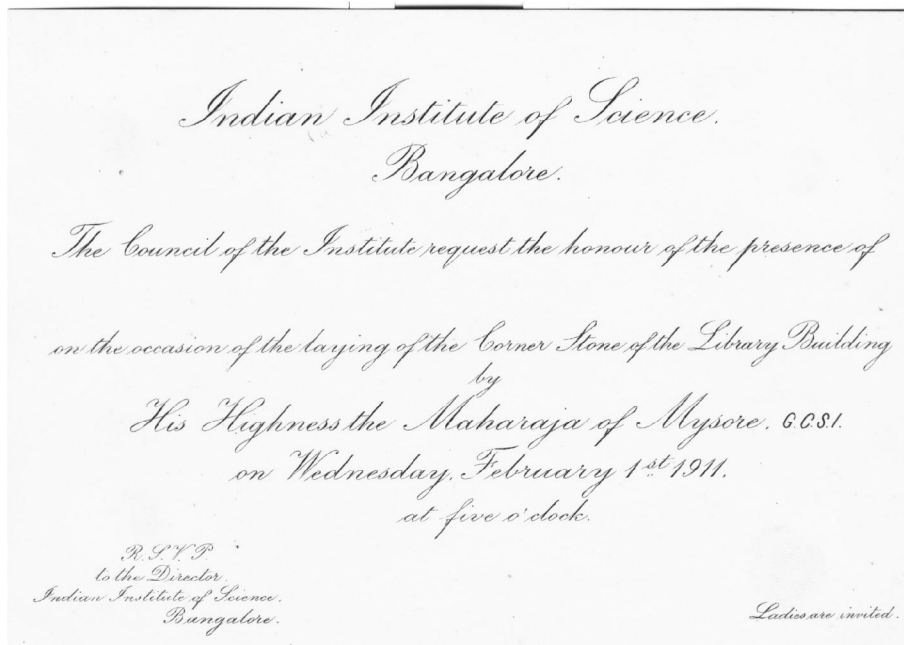 Indian Institute of Science.
Bangalore.
The Council of the Institute request the honour of the presence of
on the occasion of the laying of the Corner Stone of the Library Building
by
His Highness the Maharaja of Mysore. G.C.S.I.
on Wednesday, February 1st 1911.
at five o'clock.
R.S.V.P
to the Director.
Indian Institute of Science.
Bangalore.
Ladies are invited.